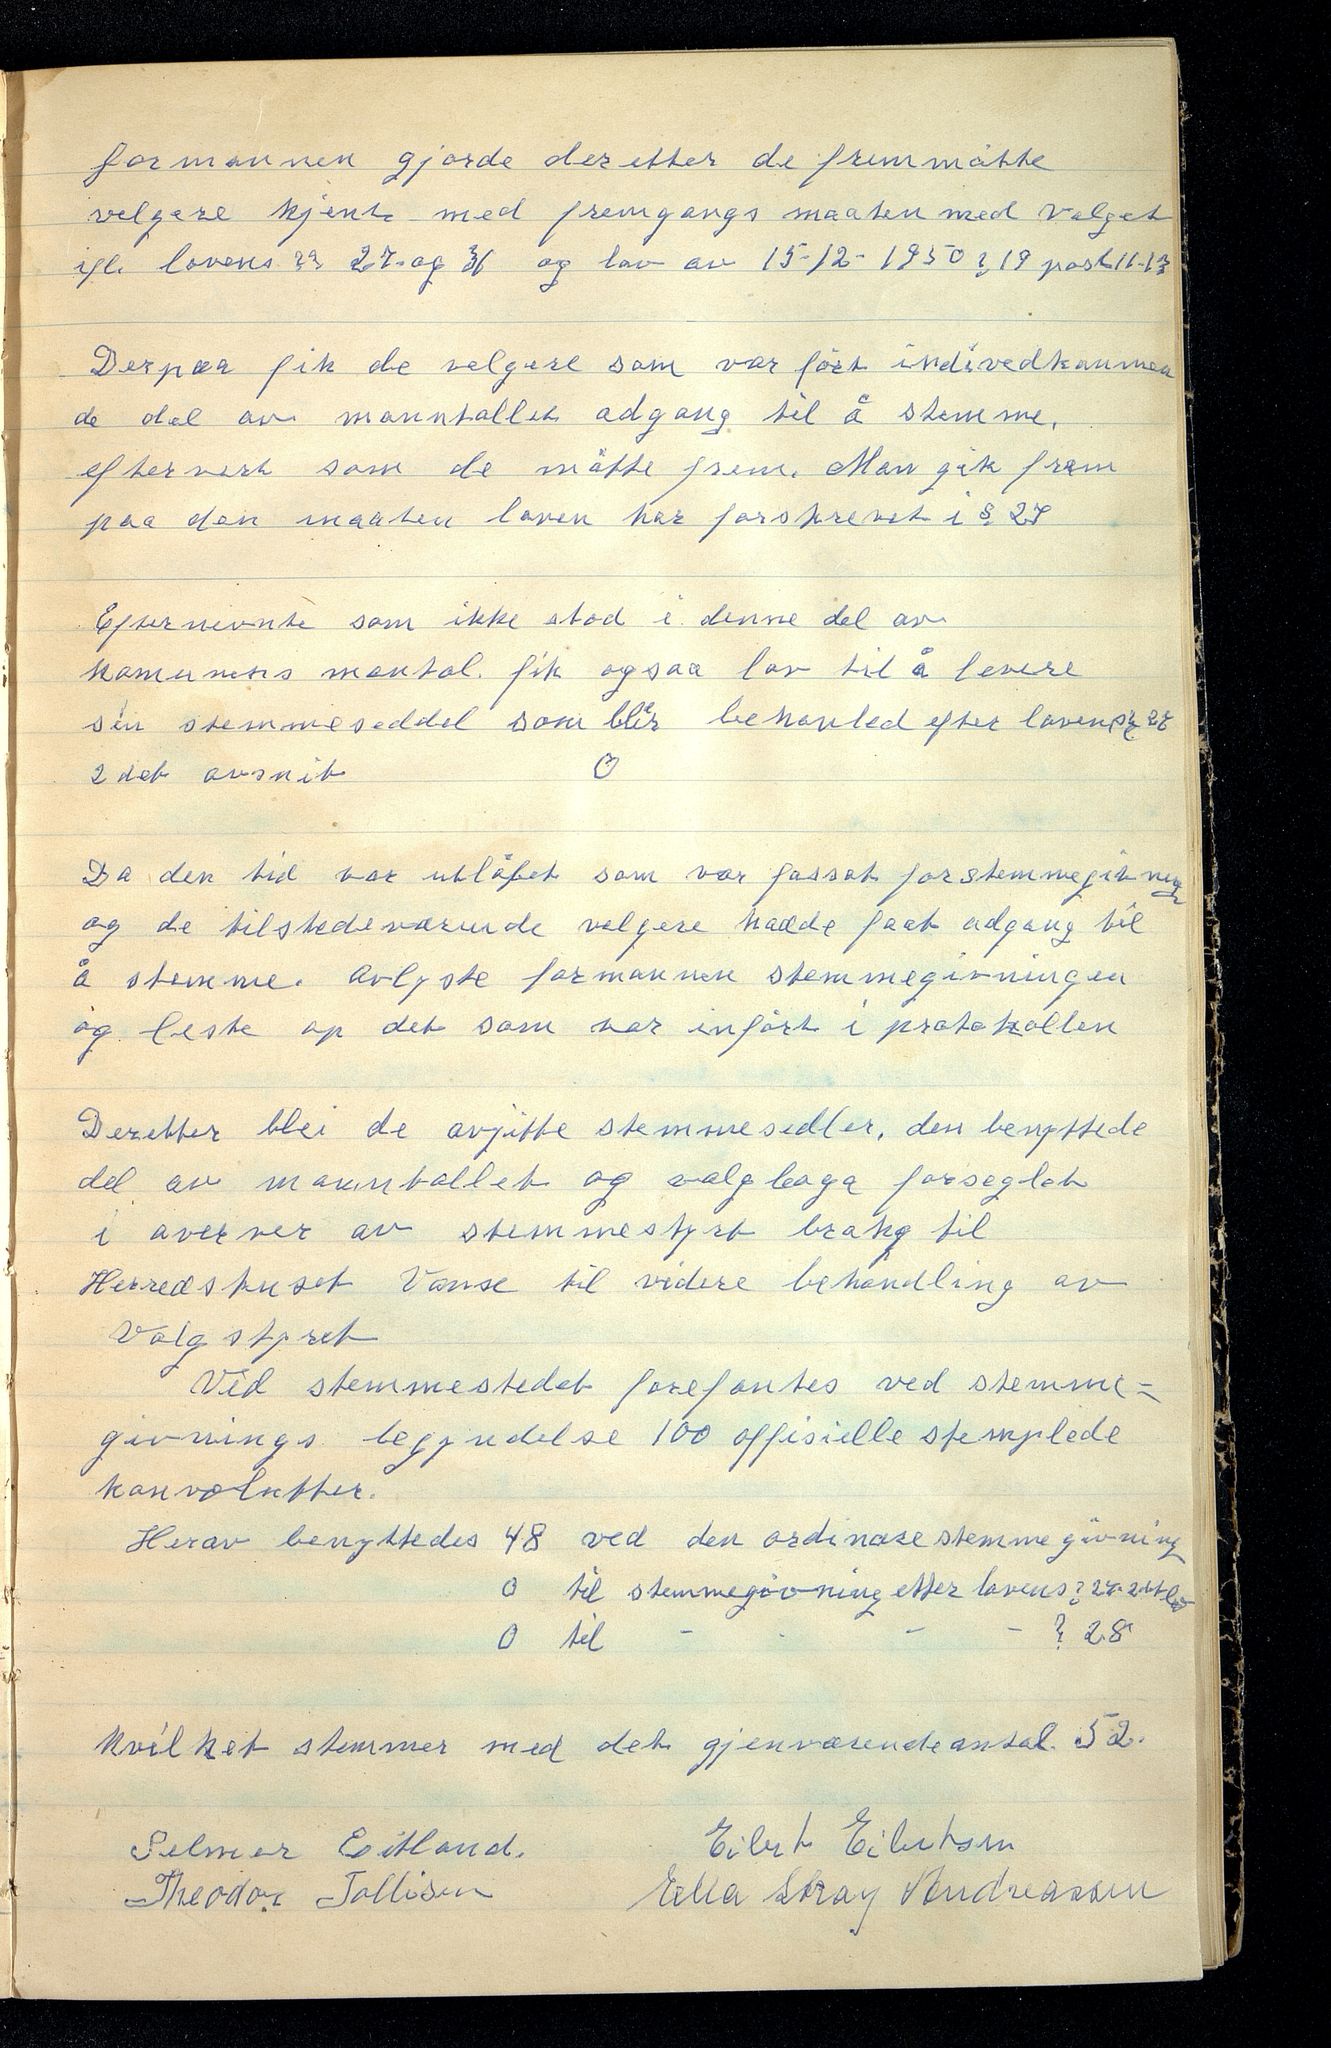 formannen gjorde deretter de fremmötte
velgere kjent med fremgangs maaten med Valget
ifl. lovens §§ 27. og 36 og lov av 15-12-1950 § 19 post 11-13
Derpaa fik de velgere som var fört i vedkommen
de del av manntallet adgang til å stemme,
eftervert som de mötte frem. Man gik frem
paa den maaten loven har forskrevet i § 27
Efternevnte som ikke stod i denne del av
komunens mantal. fik ogsaa lov til å levere
sin stemmeseddel som blir behanled efter lovens § 27
2 det avsnit 0
Da den tid var utlöpet som var fassat for stemmegitning
og de tilstedeværende velgere hadde faat adgang til
å stemme. Avlyste formannen stemmegivningen
og leste op det som var infört i protokollen
Deretter blei de avgitte stemmesedler, den benyttede
del av manntallet og valgboga forseglet
i averver av stemmestyret brakg til
Herredshuset Vanse til videre behandling av
Valgstyret
Ved stemmestedet forefantes ved stemme=
givnings begyndelse 100 offisielle stemplede
konvolutter.
Herav benyttedes 48 ved den ordinære stemmegivning
0 til stemmegivning etter lovens § 27. 2det
0 til - - - - § 28
hvilket stemmer med det gjenværende antal. 52.
Selmer Eitland. Eilert Eilertsen
Theodor Tollisen Ella Stray Andreassen